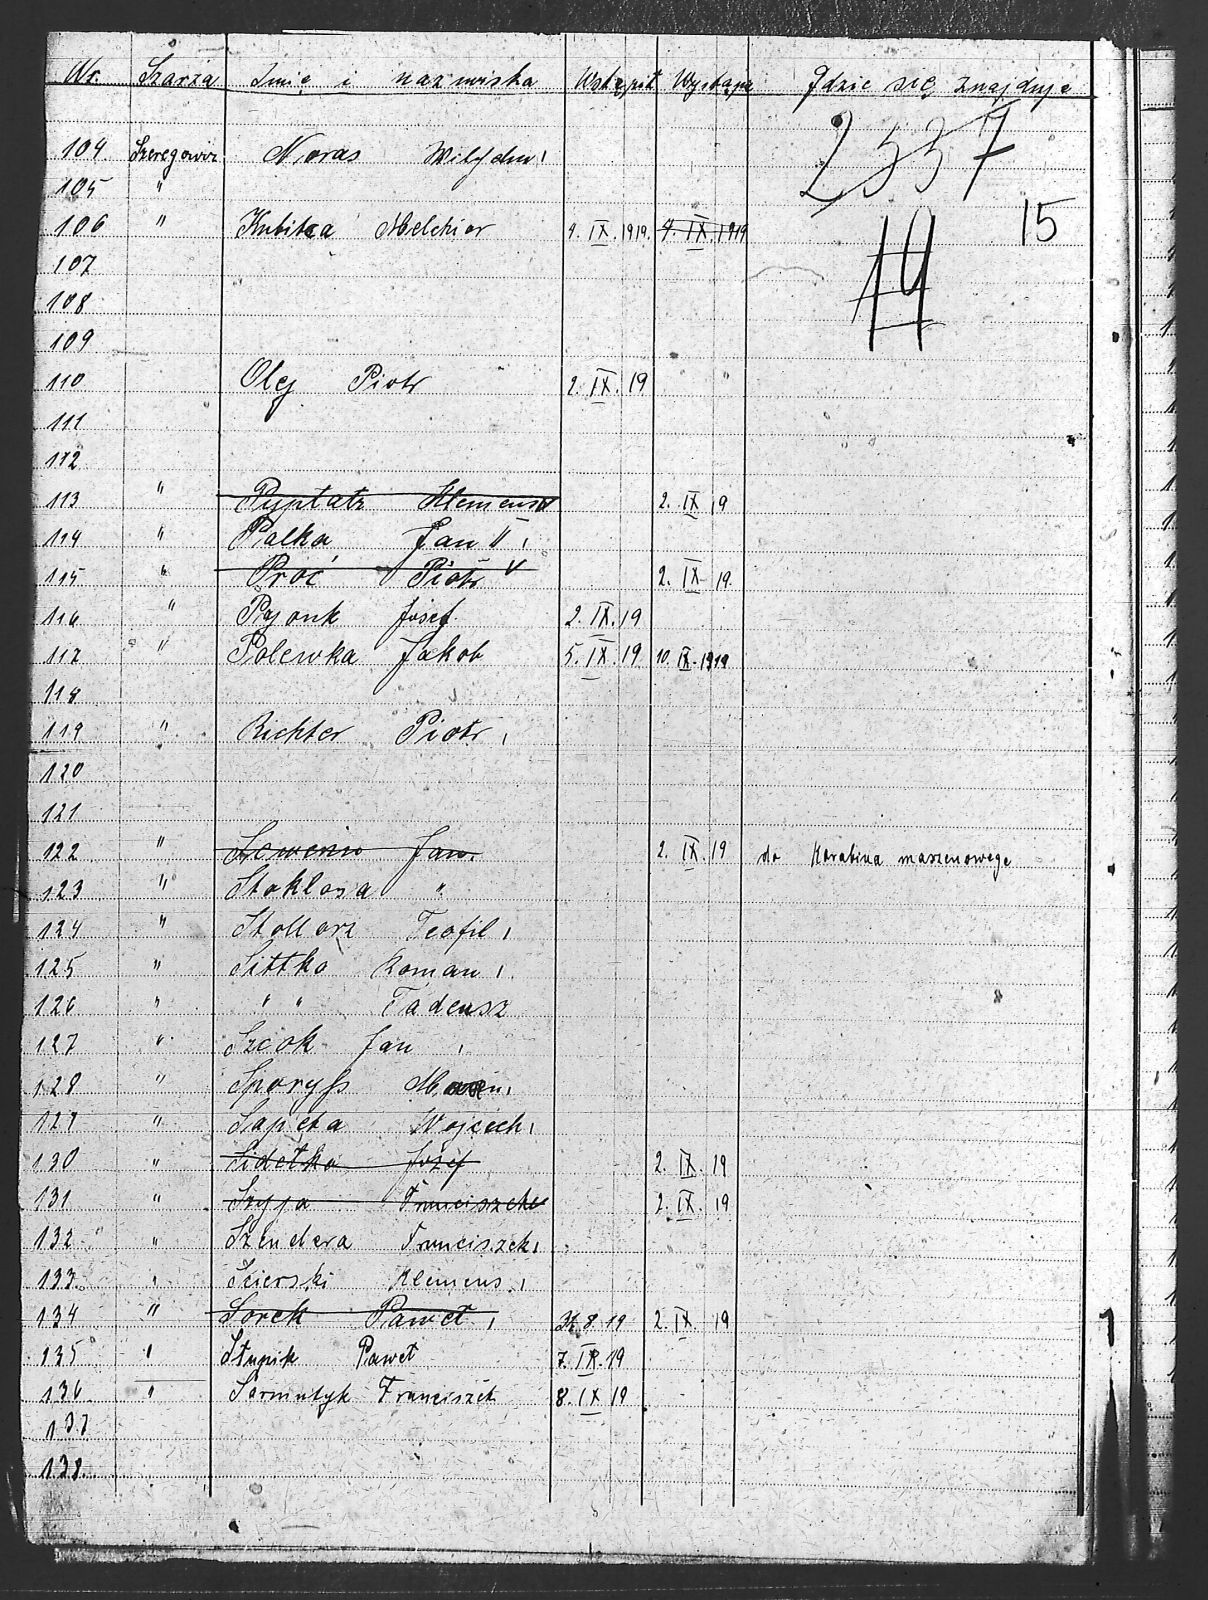 Nr. Szarża Imię i nazwiska Wstąpił Wystąpił Gdzie się znajduje
2537
104 Szeregowiec Noras Wilhelm
105 "
106 " Kubica Melchior 9. IX. 1919. 9. IX. 1919 15
107
14
108
109
110 Olej Piotr 2. IX. 19
111
112
113 " Klemens 2. IX 19
114 " Palka Jan II
115 " Proć Piotr 2. IX 19.
116 " Pyonk Józef 2. IX. 19
117 " Polewka Jakob 5. IX. 19 10. IX. 1919
118
119 " Richter Piotr
120
121
122 " Jan 2. IX 19 do Karabina maszenowego
123 " Stoklosa "
124 " Stollarz Teofil
125 " Sittko Roman
126 " " " Tadeusz
127 " Szcok Jan
128 " Sporyſs
129 " Sapeta Wojciech
130 " Sidełko Józef 2. IX. 19
131 " Szyja Franciszek 2. IX. 19
132 " Szendera Franciszek
133 " Ścierski Klemens
134 " Sorek Paweł 8. 19 2. IX 19
135 " Słupik Paweł 7. IX. 19
136 " Sarmutyk Franciszek 8. IX 19
137
138.